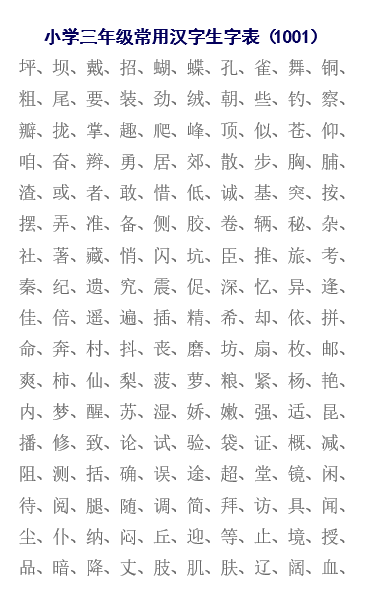 小学三年级常用汉字生字表（1001）
坪、坝、戴、招、蝴、蝶、孔、雀、舞、铜、
粗、尾、要、装、劲、绒、朝、些、钓、察、
瓣、拢、掌、趣、爬、峰、顶、似、苍、仰、
咱、奋、辫、勇、居、郊、散、步、胸、脯、
渣、或、者、敢、惜、低、诚、基、突、按、
摆、弄、准、备、侧、胶、卷、辆、秘、杂、
社、著、藏、悄、闪、坑、臣、推、旅、考、
秦、纪、遗、究、震、促、深、忆、异、逢、
佳、倍、遥、遍、插、精、希、却、依、拼、
命、奔、村、抖、丧、磨、坊、扇、枚、邮、
爽、柿、仙、梨、菠、萝、粮、紧、杨、艳、
内、梦、醒、苏、湿、娇、嫩、强、适、昆、
播、修、致、论、试、验、袋、证、概、减、
阻、测、括、确、误、途、超、堂、镜、闲、
待、阅、腿、随、调、简、拜、访、具、闻、
尘、仆、纳、闷、丘、迎、等、止、境、授、
品、暗、降、丈、肢、肌、肤、辽、阔、血、